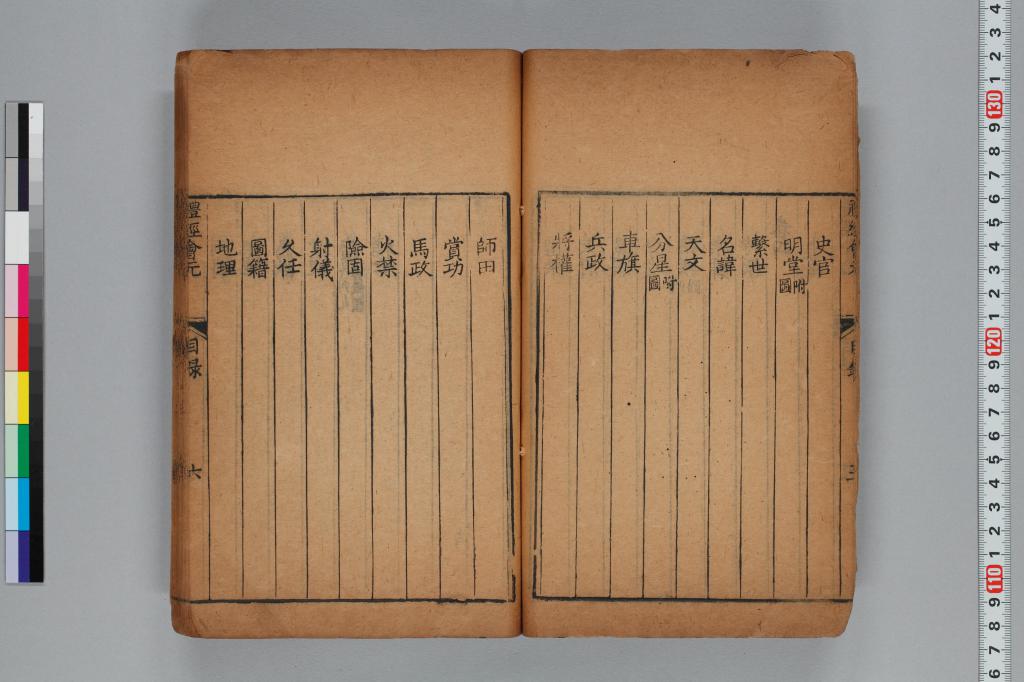 史官
明堂附圖
繫世
名諱
天文
分星附圖
車旗
兵政
將權
師田
賞功
馬政
火禁
險固
射儀
久任
圖籍
地理
禮經會元
目录
六
4
3
2
1
130
9
8
7
6
5
4
3
2
1
120
9
8
7
6
5
4
3
2
1
110
9
8
7
6